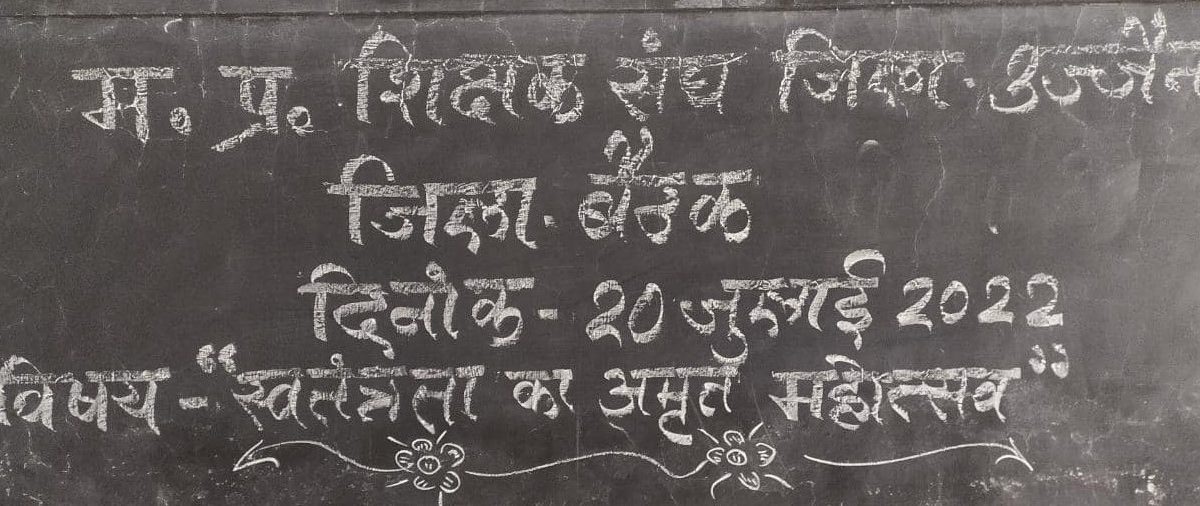 म. प्र. शिक्षक संघ जिला. उज्जैन
जिला. बैठक
दिनांक - 20 जुलाई 2022
विषय - "स्वतंत्रता का अमृत महोत्सव"